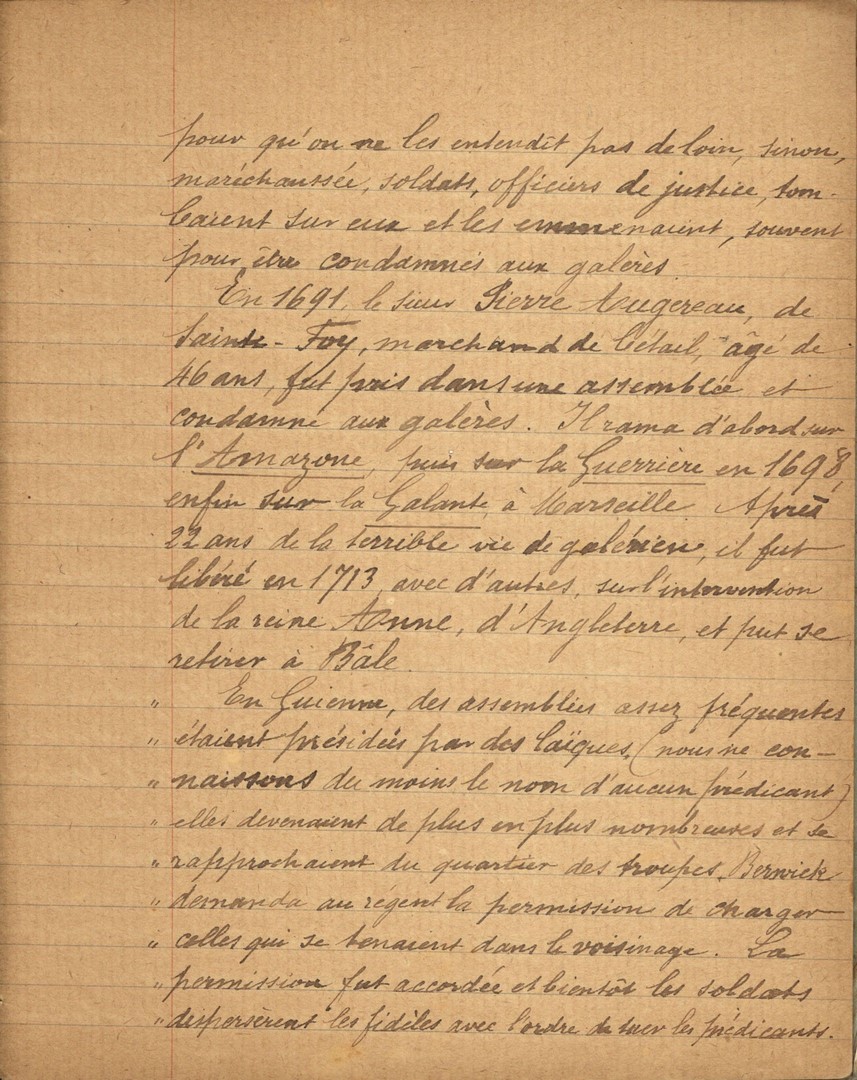 pour qu'on ne les entendît pas de loin, sinon,
maréchaussée, soldats, officiers de justice, tom-
baient sur eux et les emmenaient, souvent
pour être condamnés aux galères.
En 1691, le sieur Pierre Augereau, de
Sainte-Foy, marchand de bétail, âgé de
46 ans, fut pris dans une assemblée et
condamné aux galères. Il rama d'abord sur
l'Amazone, puis sur la Guerrière en 1698,
enfin sur la Galante, à Marseille. Après
22 ans de la terrible vie de galérien, il fut
libéré en 1713, avec d'autres, sur l'intervention
de la reine Anne, d'Angleterre, et put se
retirer à Bâle.
" En Guienne, des assemblées assez fréquentes
" étaient présidées par des laïques, (nous ne con-
" naissons du moins le nom d'aucun prédicant)
" elles devenaient de plus en plus nombreuses et se
" rapprochaient du quartier des troupes. Berwick
" demanda au régent la permission de charger
" celles qui se tenaient dans le voisinage. La
" permission fut accordée et bientôt les soldats
" dispersèrent les fidèles avec l'ordre de tuer les prédicants.